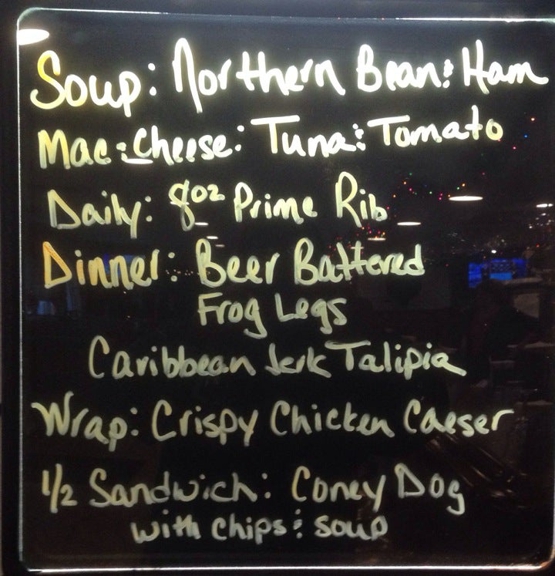 Soup: Northern Bean & Ham
Mac & Cheese: Tuna & Tomato
Daily: 8oz Prime Rib
Dinner: Beer Battered
Frog Legs
Caribbean Jerk Talipia
Wrap: Crispy Chicken Caeser
1/2 Sandwich: Coney Dog
with chips & soup